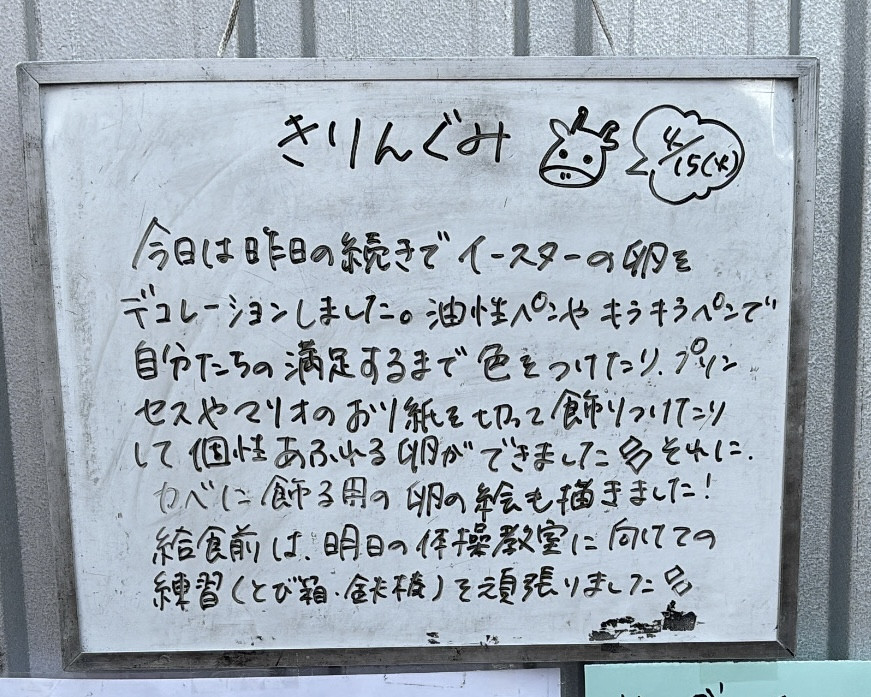 きりんぐみ
4/15(火)
今日は昨日の続きでイースターの卵を
デコレーションしました。油性ペンやキラキラペンで
自分たちの満足するまで色をつけたり、プリン
セスやマリオのおり紙を切って飾りつけたり
して個性あふれる卵ができましたそれに、
カベに飾る用の卵の絵も描きました!
給食前は、明日の体操教室に向けての
練習(とび箱・鉄棒)を頑張りました